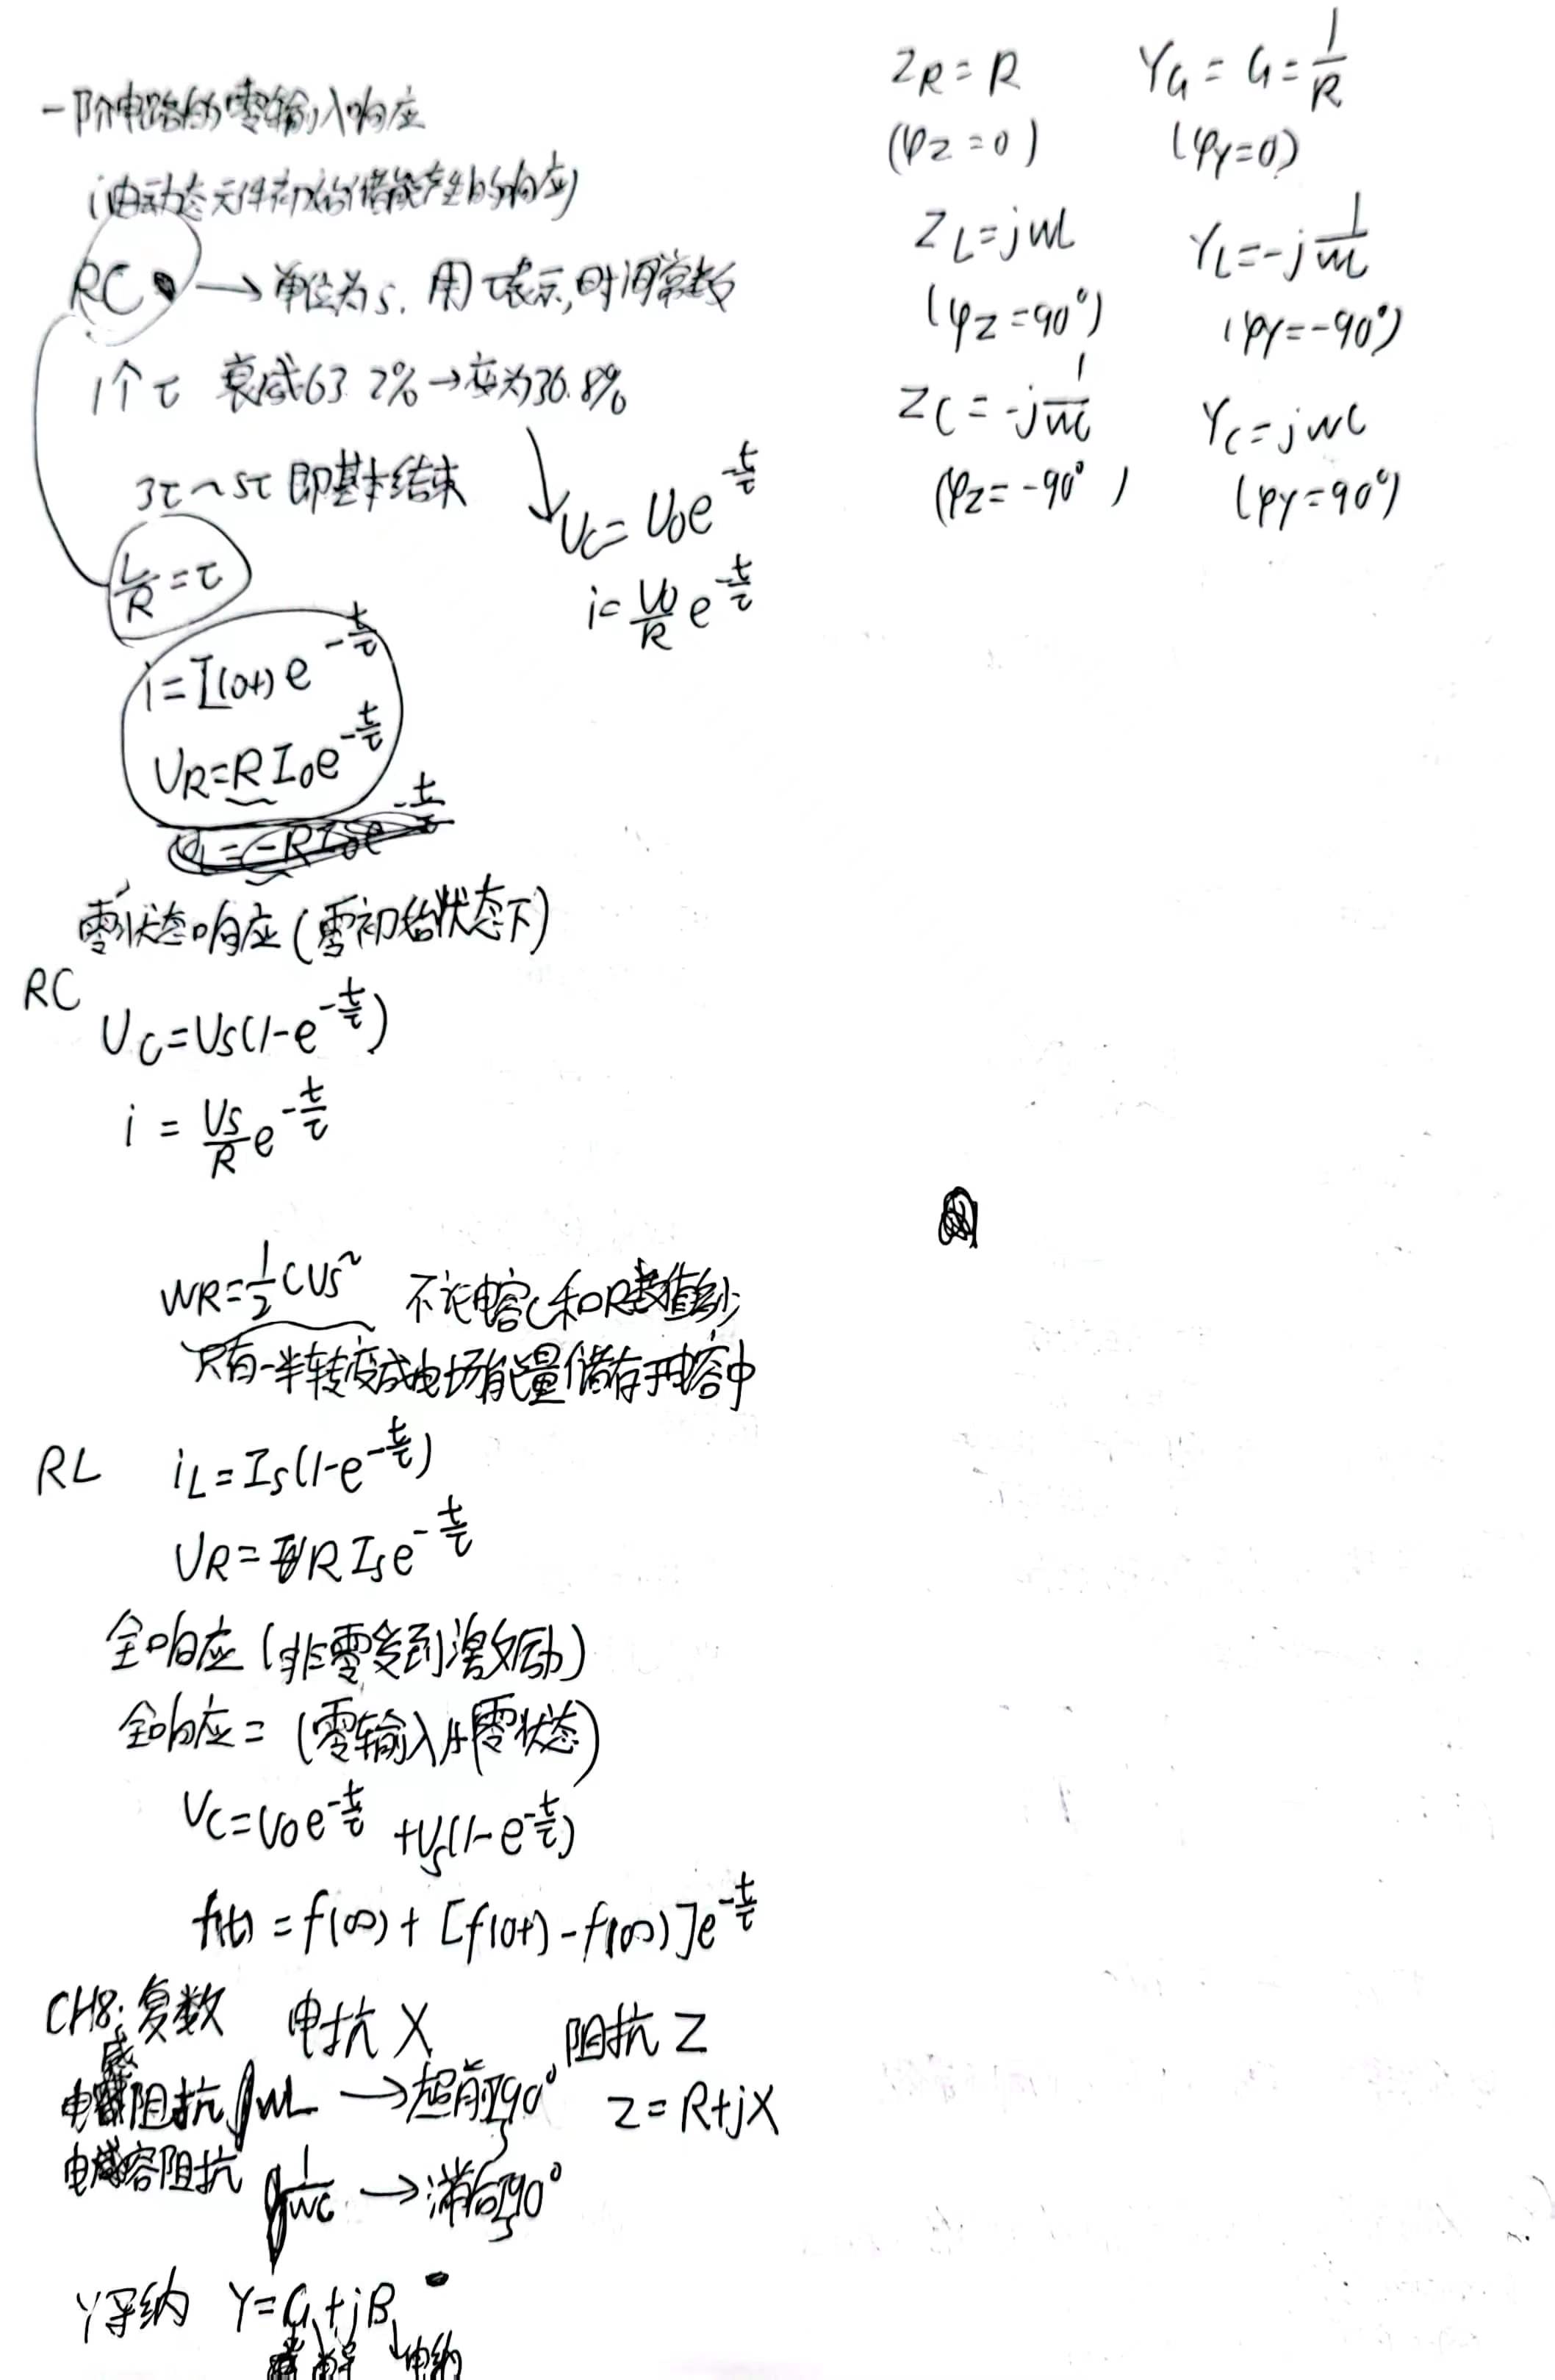 一阶电路的零输入响应
(由动态元件初始储能产生的响应)
RC → 单位为s. 用τ表示,时间常数
1个τ 衰减63.2%→变为36.8%
3τ~5τ 即基本结束
Uc=U0e^-t/τ
i=U0/R e^-t/τ
L/R=τ
i=I(0+)e^-t/τ
UR=RI0e^-t/τ
零状态响应(零初始状态下)
RC
Uc=Us(1-e^-t/τ)
i=Us/R e^-t/τ
WR=1/2CUs² 不论电容C和R数值多少
只有一半转变成电场能量储存于电容中
RL iL=Is(1-e^-t/τ)
UR=RIse^-t/τ
全响应(非零受到激励)
全响应=(零输入+零状态)
Uc=U0e^-t/τ+Us(1-e^-t/τ)
f(t)=f(∞)+[f(0+)-f(∞)]e^-t/τ
CH8:复数 电抗X 阻抗Z
电感阻抗 jwL →超前90° Z=R+jX
电容阻抗 1/wc →滞后90°
Y导纳 Y=G+jB
电纳
ZR=R YG=G=1/R
(φZ=0) (φY=0)
ZL=jwL YL=-j1/wL
(φZ=90°) (φY=-90°)
ZC=-j1/wC YC=jwC
(φZ=-90°) (φY=90°)